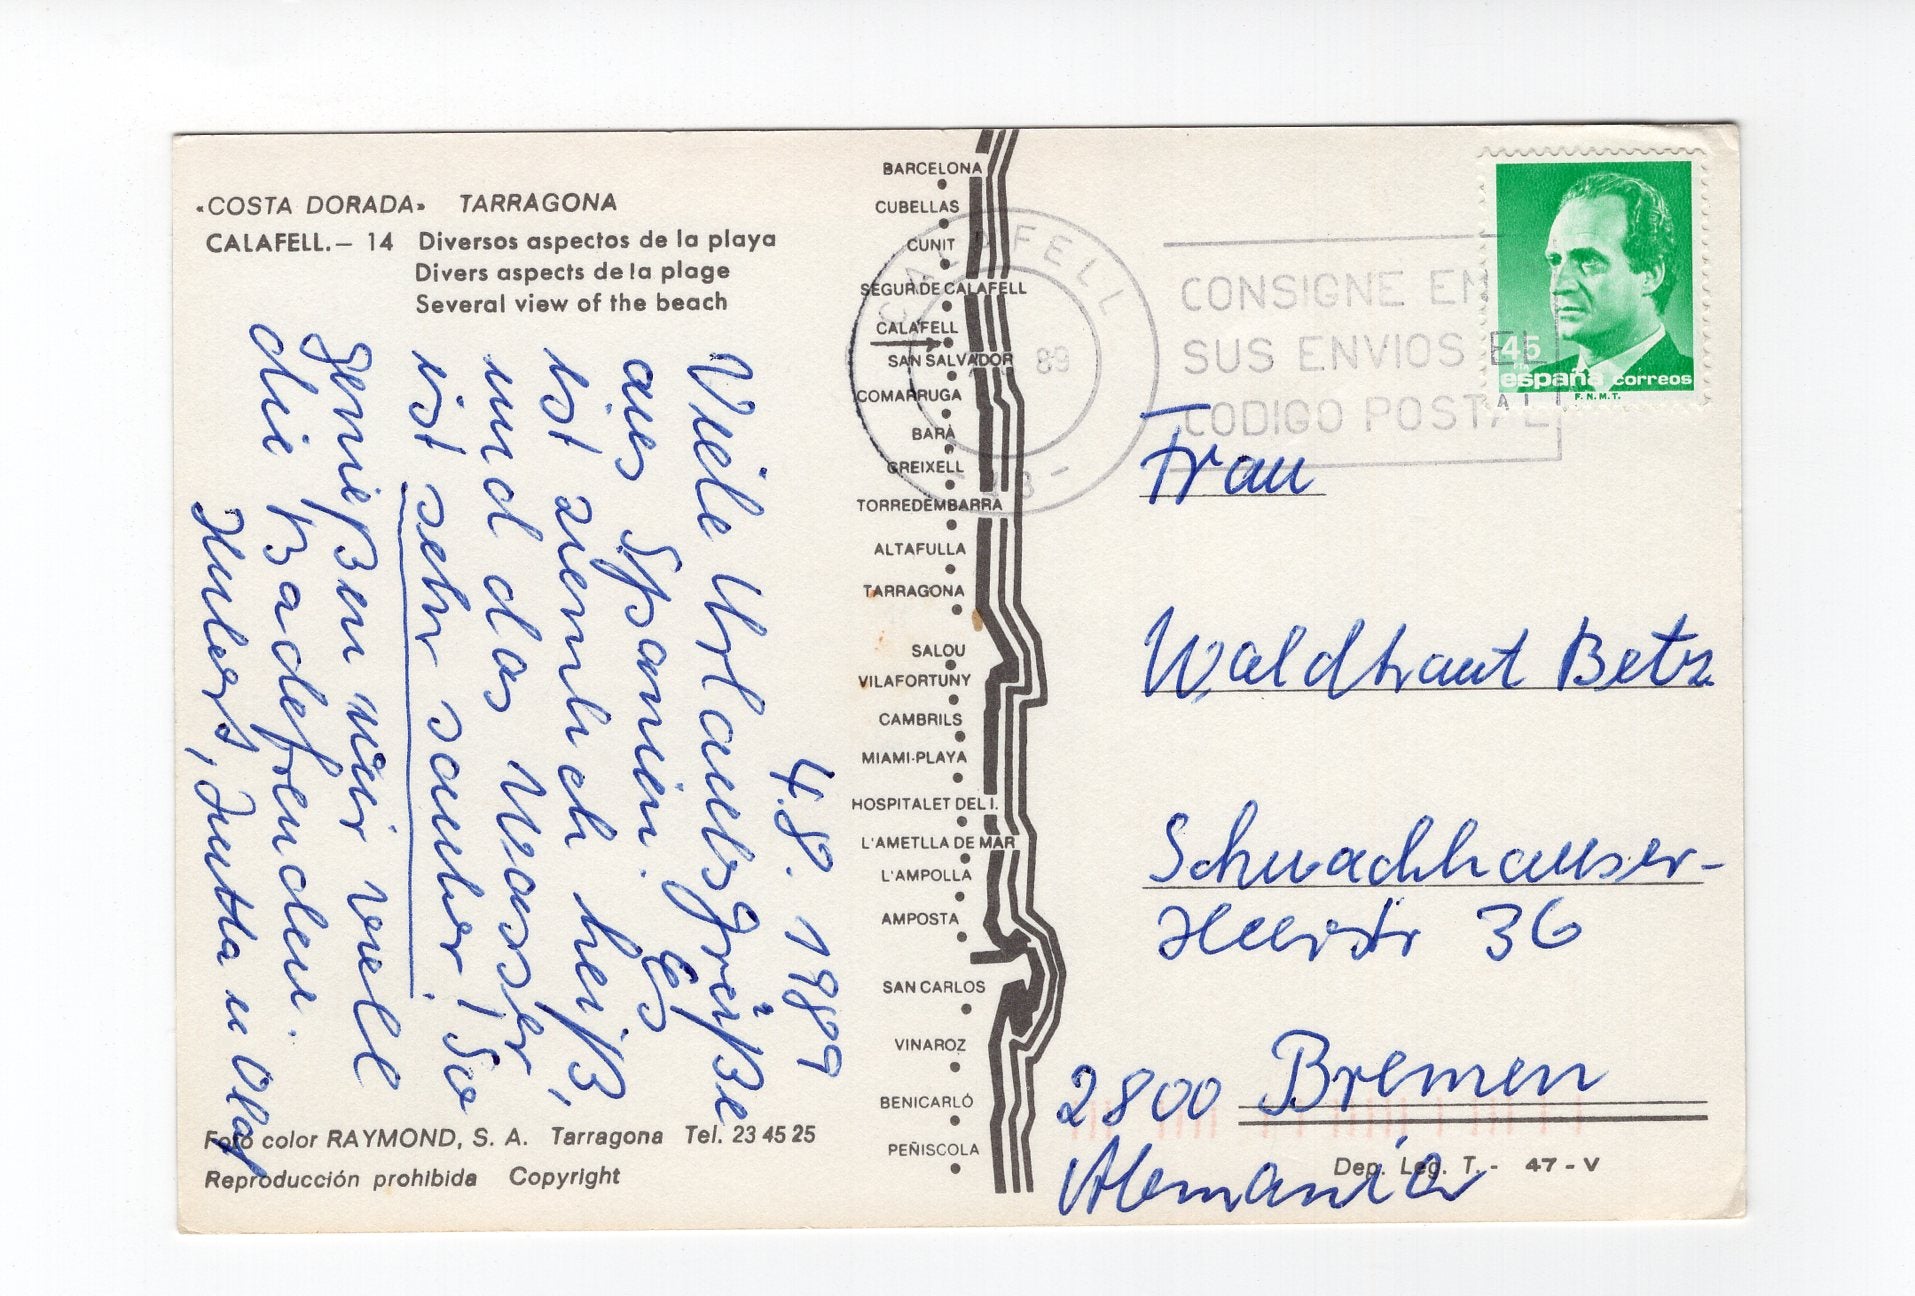 «COSTA DORADA» TARRAGONA
CALAFELL.— 14 Diversos aspectos de la playa
Divers aspects de la plage
Several view of the beach
4.8. 1989
Viele Urlaubsgrüße
aus Spanien. Es
ist ziemlich heiß,
und das Wasser
ist sehr sauber! So
genießen wir voll
die Badefreuden.
Jutta u Olaf
Foto color RAYMOND, S. A. Tarragona Tel. 23 45 25
Reproducción prohibida Copyright
BARCELONA
CUBELLAS
CUNIT
SEGUR DE CALAFELL
CALAFELL
SAN SALVADOR
COMARRUGA
BARÀ
CREIXELL
TORREDEMBARRA
ALTAFULLA
TARRAGONA
SALOU
VILAFORTUNY
CAMBRILS
MIAMI-PLAYA
HOSPITALET DEL I.
L'AMETLLA DE MAR
L'AMPOLLA
AMPOSTA
SAN CARLOS
VINAROZ
BENICARLÓ
PEÑISCOLA
CALAFELL
89
CONSIGNE EN
SUS ENVIOS EL
CODIGO POSTAL
45
PTA
españa correos
F.N.M.T.
Frau
Waldtraut Betz
Schwachhauser-
Heerstr 36
2800 Bremen
Alemania
Dep. Leg. T. - 47 - V